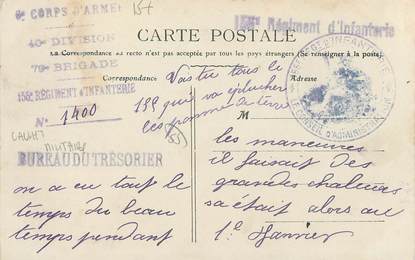 6e CORPS D'ARMÉE
154
40e DIVISION
79e BRIGADE
155e RÉGIMENT D'INFANTERIE
No 1400
CACHET
MILITAIRE
BUREAU DU TRÉSORIER
CARTE POSTALE
La Correspondance au recto n'est pas acceptée par tous les pays étrangers (Se renseigner à la poste).
Correspondance
Adresse
Régiment d'Infanterie
LE CONSEIL D'ADMINISTRATION
tous le
155 que va éplucher
les pommes de terre
155
M
on a eu tout le
temps du beau
temps pendant
les maneuvres
il faisait des
grandes chaleurs
sa était alors au
1e Janvier